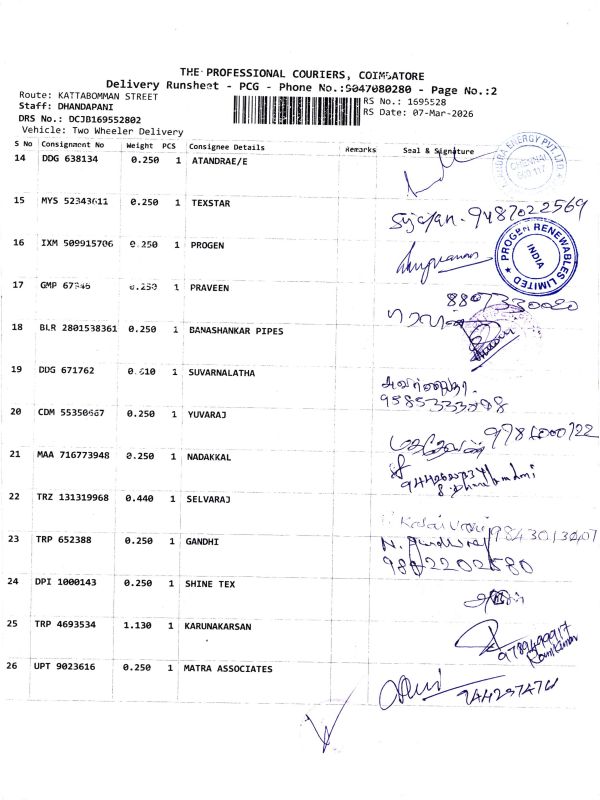 THE PROFESSIONAL COURIERS, COIMBATORE
Delivery Runsheet - PCG - Phone No.:9047080280 - Page No.:2
Route: KATTABOMMAN STREET
Staff: DHANDAPANI
DRS No.: DCJB169552802
Vehicle: Two Wheeler Delivery
RS No.: 1695528
RS Date: 07-Mar-2026
S No Consignment No Weight PCS Consignee Details Remarks Seal & Signature
14 DDG 638134 0.250 1 ATANDRAE/E
ENERGY PVT. LTD
CHENNAI
600 117
15 MYS 52343611 0.250 1 TEXSTAR
9487022569
16 IXM 509915706 0.250 1 PROGEN
PROGEN RENEWABLES LIMITED
INDIA
17 GMP 0.250 1 PRAVEEN
8807330020
18 BLR 2801538361 0.250 1 BANASHANKAR PIPES
19 DDG 671762 0.610 1 SUVARNALATHA
20 CDM 55350667 0.250 1 YUVARAJ
21 MAA 716773948 0.250 1 NADAKKAL
22 TRZ 131319968 0.440 1 SELVARAJ
23 TRP 652388 0.250 1 GANDHI
24 DPI 1000143 0.250 1 SHINE TEX
25 TRP 4693534 1.130 1 KARUNAKARSAN
26 UPT 9023616 0.250 1 MATRA ASSOCIATES